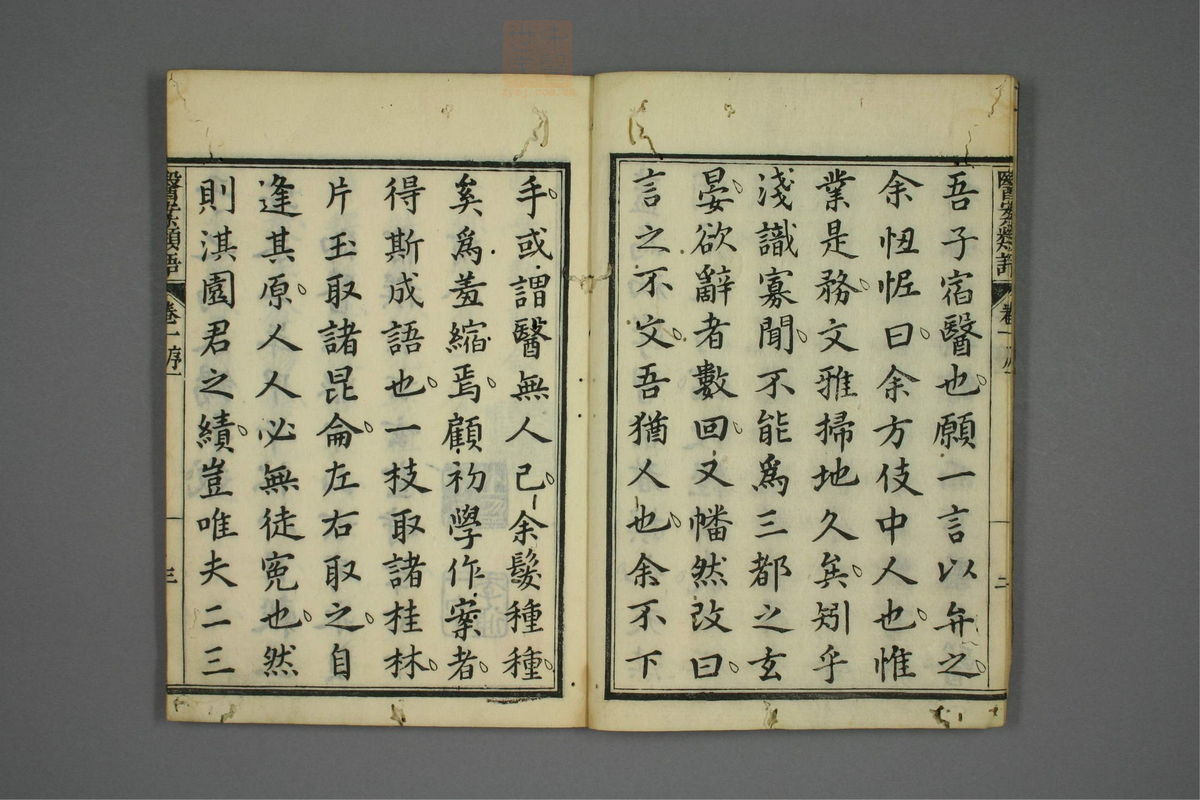 吾子宿醫也願一言以弁之
余忸怩曰余方伎中人也惟
業是務文雅掃地久矣矧乎
淺識寡聞不能爲三都之玄
晏欲辭者數回又幡然改曰
言之不文吾猶人也余不下
手或謂醫無人已余髮種種
矣爲羞縮焉顧初學作案者
得斯成語也一枝取諸桂林
片玉取諸昆侖左右取之自
逢其原人人必無徒寃也然
則淇園君之績豈唯夫二三
醫案類語
卷一序
三
醫案類語
卷一
二